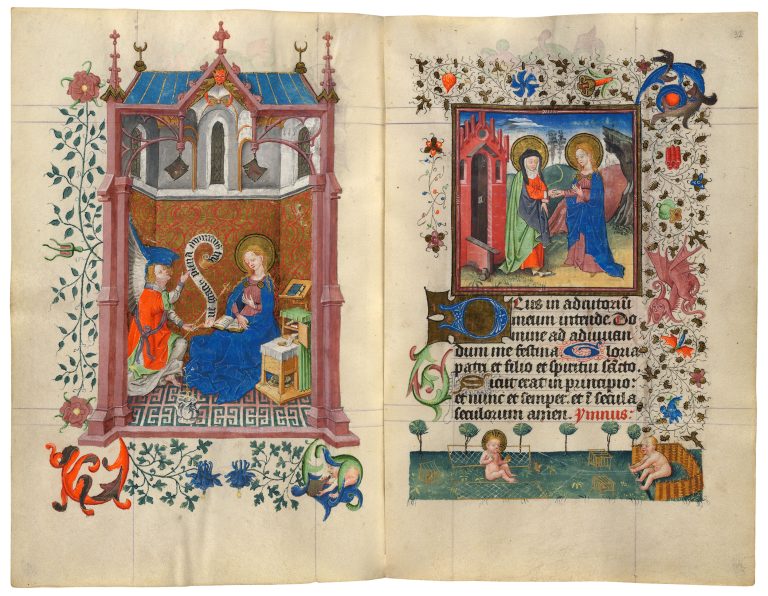 gracia plena dominus te
32
Deus in adiutoriū
meum intende. Do
mine ad adiuuan
dum me festina Gloria
patri et filio et spiritui sācto
Sicut erat in principio:
et nunc et semper. et ī secula
seculorum amen. Ymnus: